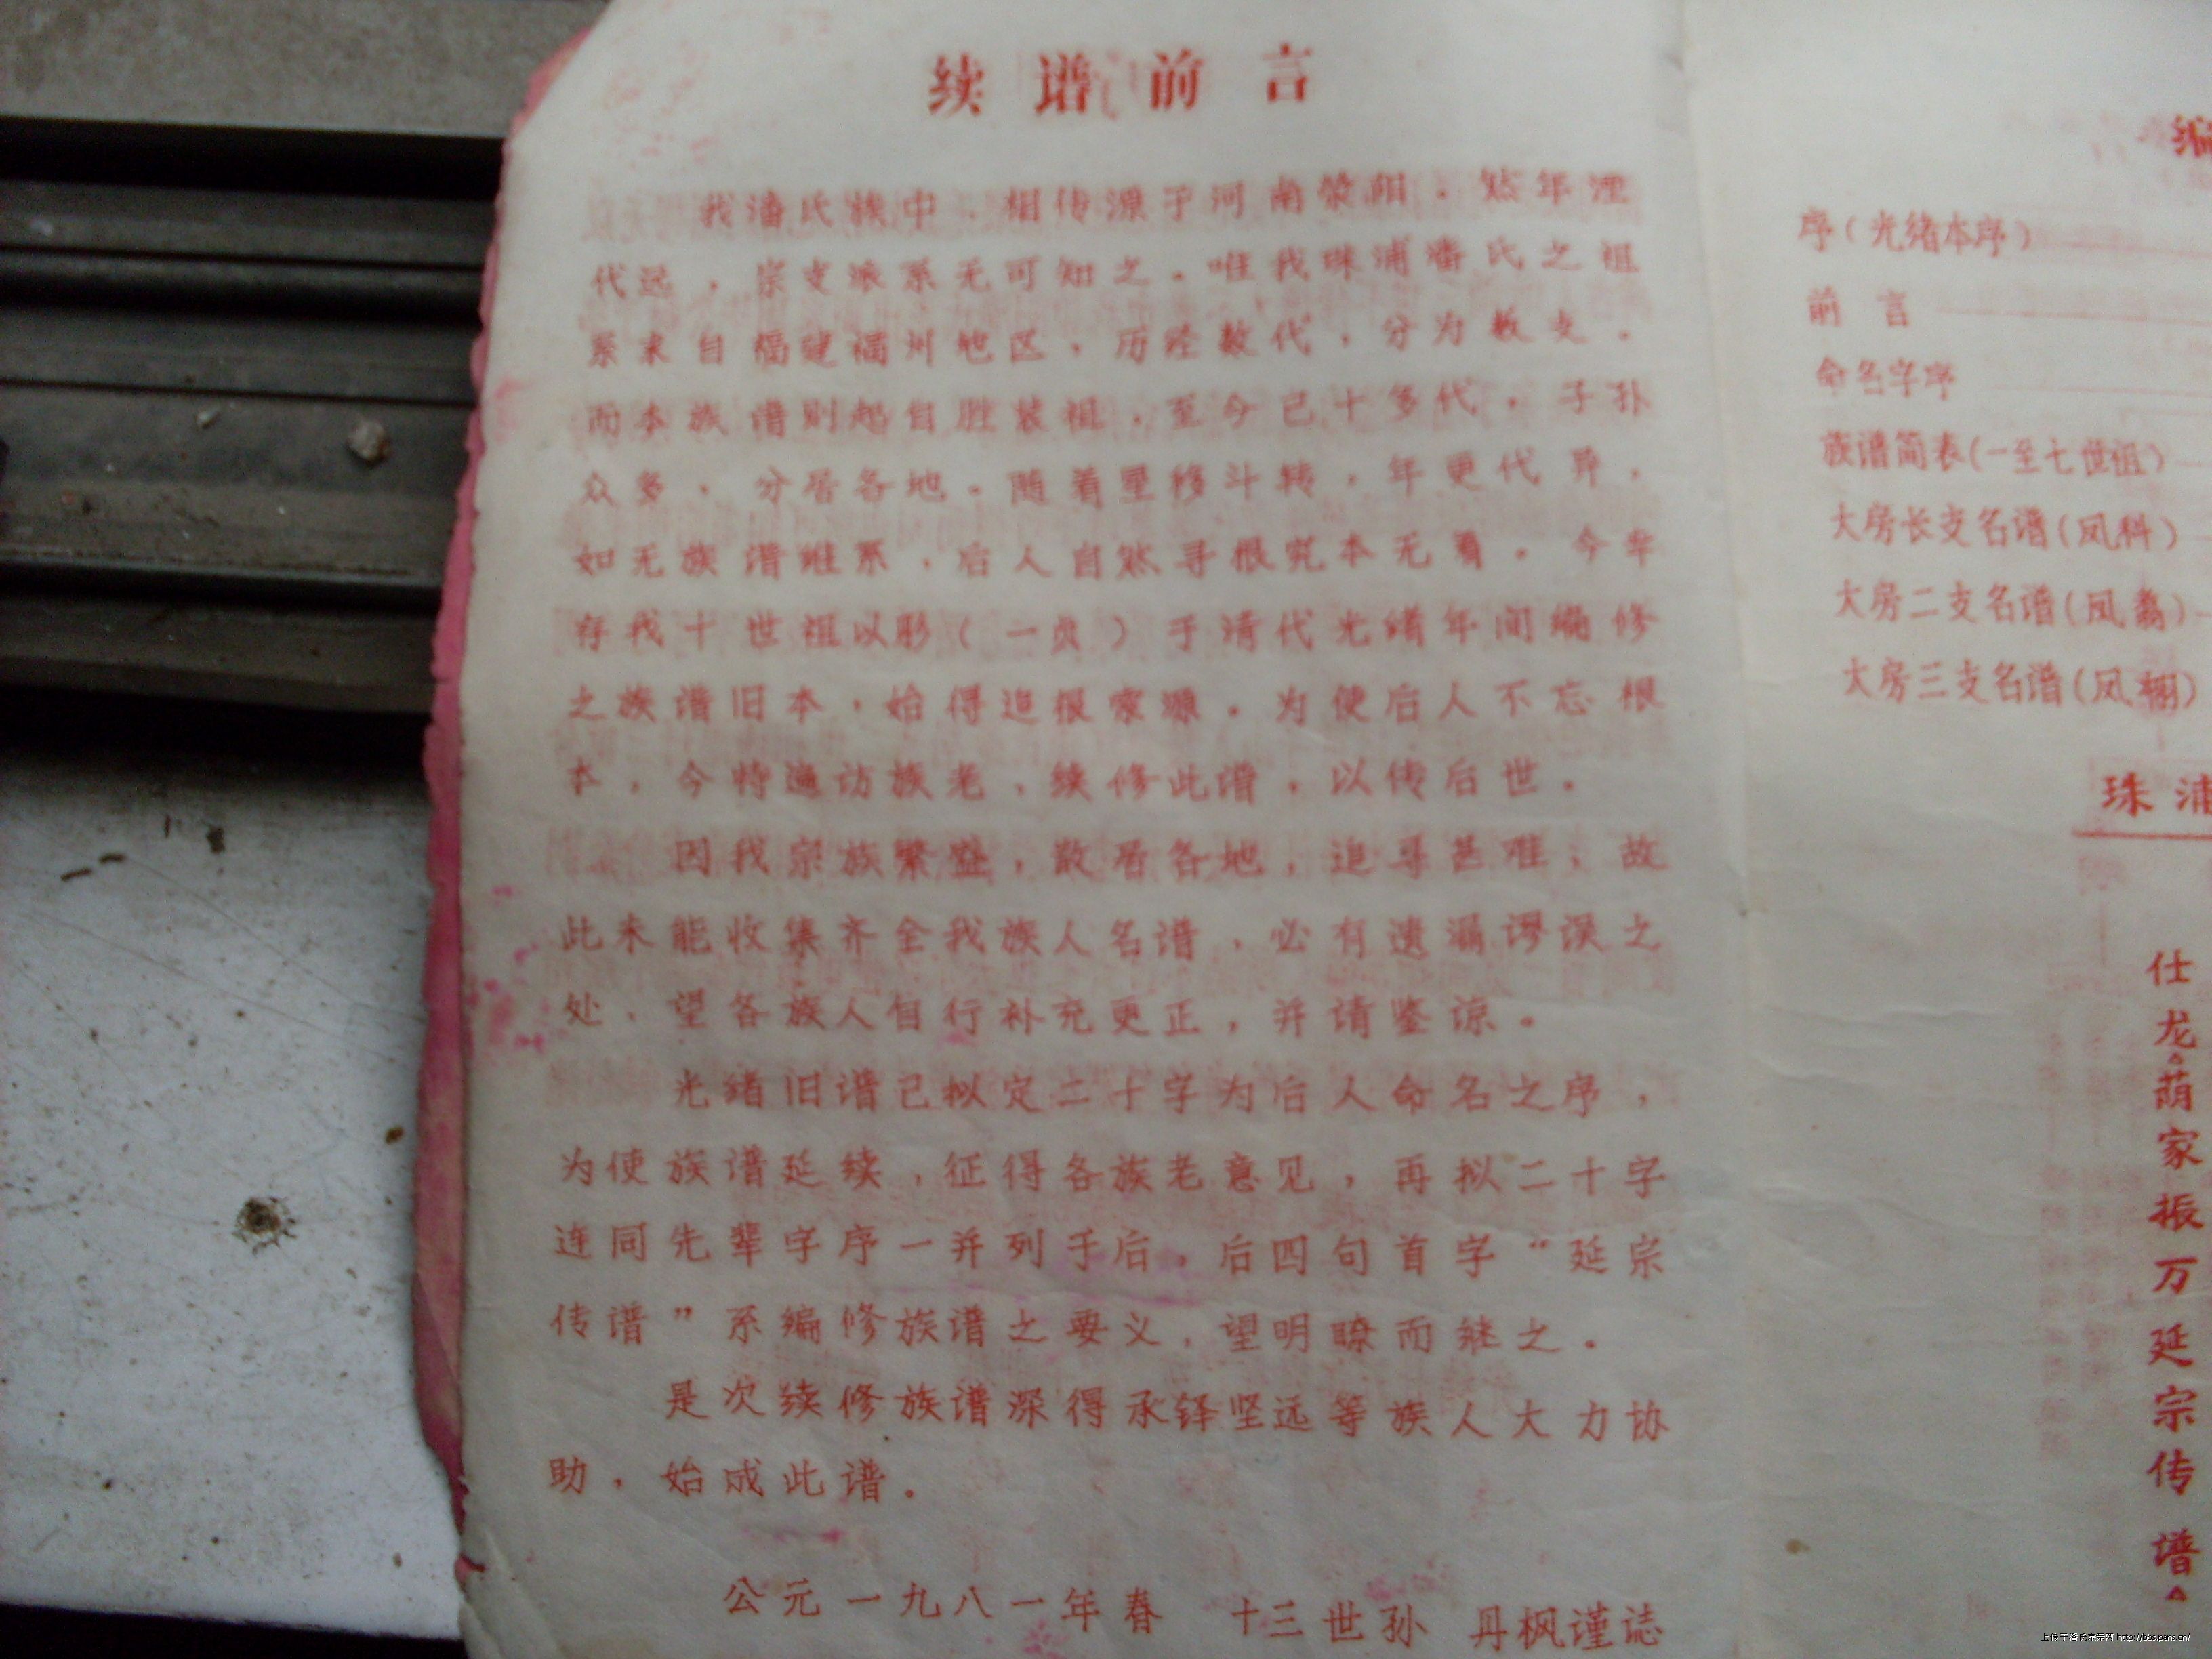 续谱前言
我潘氏族中，相传源于河南荥阳，然年湮
代远，宗支派系无可知之。唯我珠浦潘氏之祖
系来自福建福州地区，历经数代，分为数支。
而本族谱则起自胜裳祖，至今已十多代，子孙
众多，分居各地。随着星移斗转，年更代异，
如无族谱维系，后人自然寻根究本无着。今幸
存我十世祖以彤（一贞）于清代光绪年间编修
之族谱旧本，始得追根索源。为使后人不忘根
本，今特遍访族老，续修此谱，以传后世。
因我宗族繁盛，散居各地，追寻甚难，故
此未能收集齐全我族人名谱，必有遗漏谬误之
处、望各族人自行补充更正，并请鉴谅。
光绪旧谱已拟定二十字为后人命名之序，
为使族谱延续，征得各族老意见，再拟二十字
连同先辈字序一并列于后，后四句首字“延宗
传谱”系编修族谱之要义，望明瞭而继之。
是次续修族谱深得承铎坚远等族人大力协
助，始成此谱。
公元一九八一年春 十三世孙 丹枫谨誌
编
序（光绪本序）
前言
命名字序
族谱简表（一至七世祖）
大房长支名谱（凤科）
大房二支名谱（凤翥）
大房三支名谱（凤翱）
珠浦
仕
龙
荫
家
振
万
延
宗
传
谱
上传于潘氏宗亲网